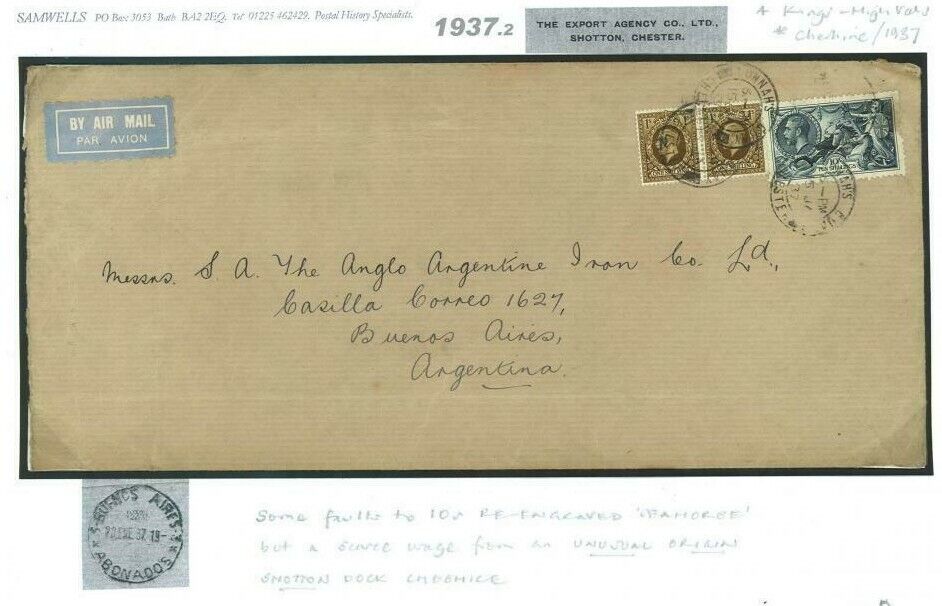 SAMWELLS PO Box 3053 Bath BA2 2EQ. Tel 01225 462429. Postal History Specialists.
1937.2
THE EXPORT AGENCY CO., LTD.,
SHOTTON, CHESTER.
* Kings - High Vals
* Cheshire / 1937
BY AIR MAIL
PAR AVION
ONE SHILLING
Messrs. S A. The Anglo Argentine Iron Co. Ld.,
Casilla Correo 1627,
Buenos Aires,
Argentina.
BUENOS AIRES
ABONADOS
Some faults to 10s RE-ENGRAVED 'SEAHORSE'
but a scarce usage from an UNUSUAL ORIGIN
SHOTTON DOCK CHESHIRE